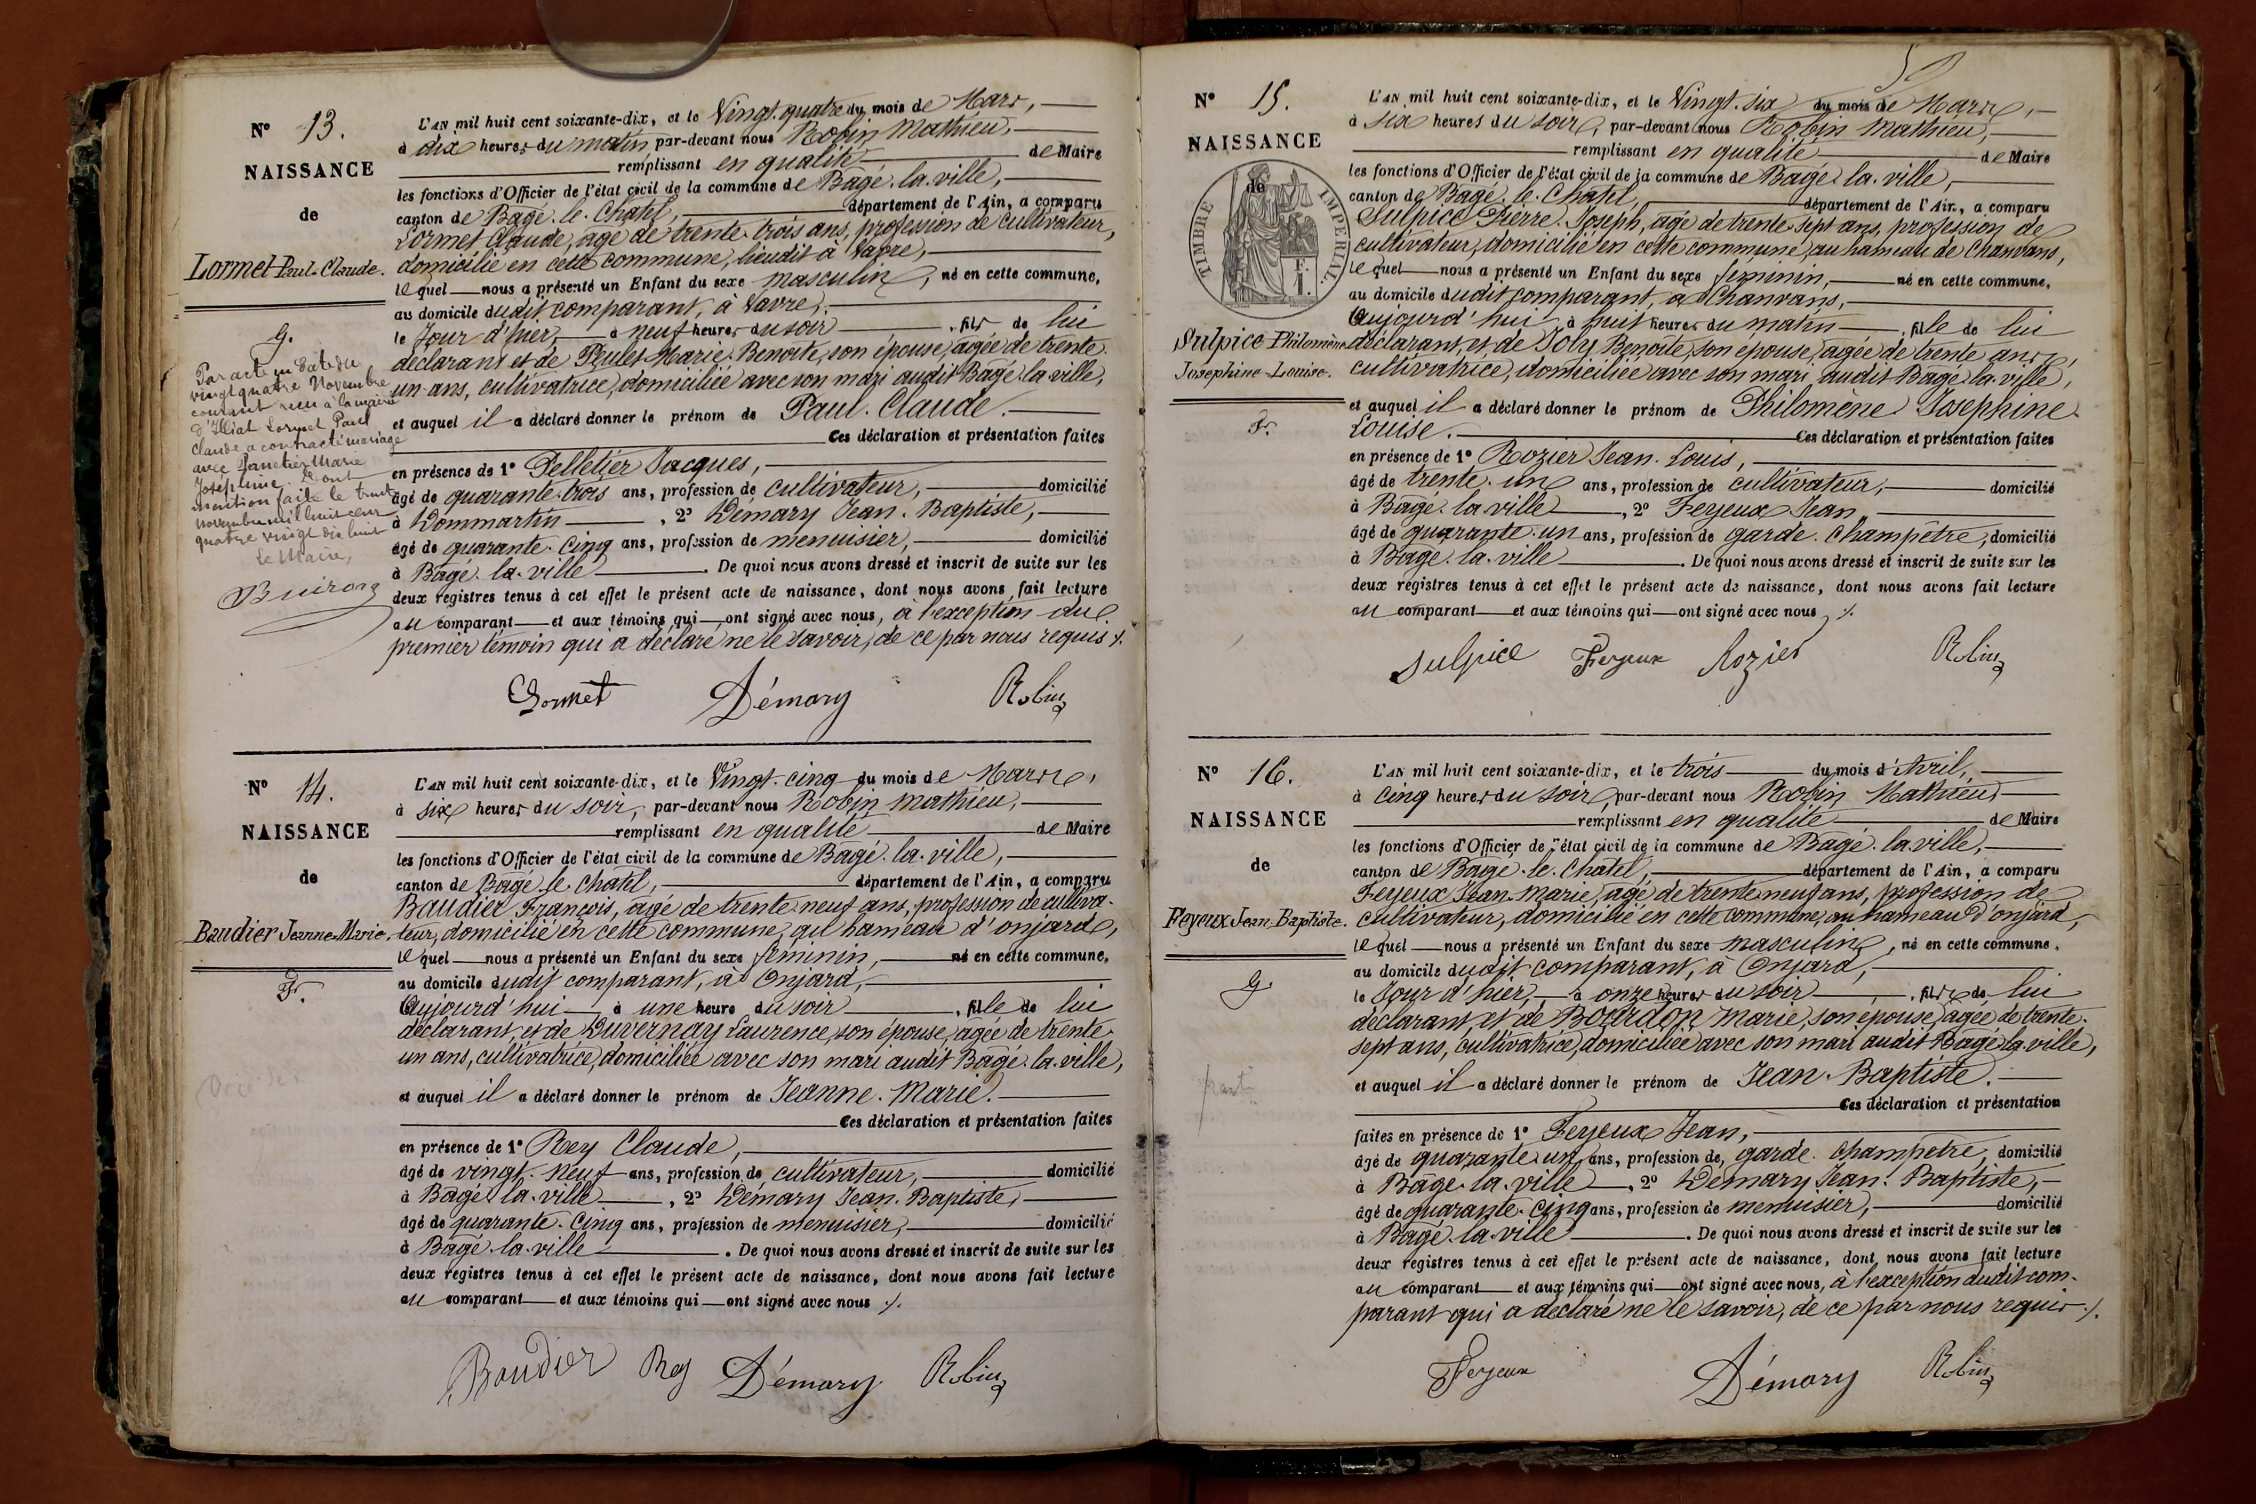 N° 13.
NAISSANCE
de
Lormet Paul-Claude.
G.
Par acte en date du
vingt quatre Novembre
courant reçu à la mairie
d'Illiat Lormet Paul
Claude a contracté mariage
avec Marie
Joséphine. Dont
mention faite le trente
novembre mil huit cent
quatre vingt dix huit
Le Maire,
L'AN mil huit cent soixante-dix, et le Vingt-quatre du mois de Mars,
à dix heures du matin par-devant nous Robin Mathieu,
remplissant en qualité de Maire
les fonctions d'Officier de l'état civil de la commune de Bâgé-la-ville,
canton de Bâgé-le-Chatel, département de l'Ain, a comparu
Lormet Claude, âgé de trente-trois ans, profession de cultivateur,
domicilié en cette commune, lieudit à Vavre,
lequel nous a présenté un Enfant du sexe masculin, né en cette commune,
au domicile dudit comparant, à Vavre,
le Jour d'hier, à neuf heures du soir, fils de lui
déclarant et de Marie-Benoite, son épouse, âgée de trente-
un ans, cultivatrice, domiciliée avec son mari audit Bâgé-la-ville,
et auquel il a déclaré donner le prénom de Paul-Claude.
Ces déclaration et présentation faites
en présence de 1° Pelletier Jacques,
âgé de quarante-trois ans, profession de cultivateur, domicilié
à Dommartin, 2° Démary Jean-Baptiste,
âgé de quarante-cinq ans, profession de menuisier, domicilié
à Bâgé-la-ville. De quoi nous avons dressé et inscrit de suite sur les
deux registres tenus à cet effet le présent acte de naissance, dont nous avons fait lecture
au comparant et aux témoins qui ont signé avec nous, à l'exception du
premier témoin qui a déclaré ne le savoir, de ce par nous requis ./.
Lormet Démary Robin
N° 14.
NAISSANCE
de
Baudier Jeanne-Marie.
F.
L'AN mil huit cent soixante-dix, et le Vingt-cinq du mois de Mars,
à six heures du soir, par-devant nous Robin Mathieu,
remplissant en qualité de Maire
les fonctions d'Officier de l'état civil de la commune de Bâgé-la-ville,
canton de Bâgé-le-Chatel, département de l'Ain, a comparu
Baudier François, âgé de trente-neuf ans, profession de cultiva-
teur, domicilié en cette commune, au hameau d'onjard,
lequel nous a présenté un Enfant du sexe féminin, né en cette commune,
au domicile dudit comparant, à Onjard,
Aujourd'hui à une heure du soir, fille de lui
déclarant, et de Duvernay Laurence, son épouse, âgée de trente-
un ans, cultivatrice, domiciliée avec son mari audit Bâgé-la-ville,
et auquel il a déclaré donner le prénom de Jeanne-Marie.
Ces déclaration et présentation faites
en présence de 1° Rey Claude,
âgé de vingt-neuf ans, profession de cultivateur, domicilié
à Bâgé-la-ville, 2° Démary Jean-Baptiste,
âgé de quarante-cinq ans, profession de menuisier, domicilié
à Bâgé-la-ville. De quoi nous avons dressé et inscrit de suite sur les
deux registres tenus à cet effet le présent acte de naissance, dont nous avons fait lecture
au comparant et aux témoins qui ont signé avec nous ./.
Baudier Rey Démary Robin
N° 15.
NAISSANCE
de
TIMBRE IMPERIAL
Sulpice Philomène
Joséphine-Louise.
F.
L'AN mil huit cent soixante-dix, et le Vingt-six du mois de Mars,
à six heures du soir, par-devant nous Robin Mathieu,
remplissant en qualité de Maire
les fonctions d'Officier de l'état civil de la commune de Bâgé-la-ville,
canton de Bâgé-le-Chatel, département de l'Ain, a comparu
Sulpice Pierre-Joseph, âgé de trente-sept ans, profession de
cultivateur, domicilié en cette commune, au hameau de Chanvans,
lequel nous a présenté un Enfant du sexe féminin, né en cette commune,
au domicile dudit comparant, à Chanvans,
Aujourd'hui à huit heures du matin, fille de lui
déclarant, et de Joly Benoite, son épouse, âgée de trente ans,
cultivatrice, domiciliée avec son mari, audit Bâgé-la-ville,
et auquel il a déclaré donner le prénom de Philomène Joséphine-
Louise. Ces déclaration et présentation faites
en présence de 1° Rozier Jean-Louis,
âgé de trente-un ans, profession de cultivateur, domicilié
à Bâgé-la-ville, 2° Feyeux Jean,
âgé de quarante-un ans, profession de garde-Champêtre, domicilié
à Bâgé-la-ville. De quoi nous avons dressé et inscrit de suite sur les
deux registres tenus à cet effet le présent acte de naissance, dont nous avons fait lecture
au comparant et aux témoins qui ont signé avec nous ./.
Sulpice Feyeux Rozier Robin
N° 16.
NAISSANCE
de
Feyeux Jean-Baptiste.
G.
L'AN mil huit cent soixante-dix, et le trois du mois d'Avril,
à cinq heures du soir, par-devant nous Robin Mathieu,
remplissant en qualité de Maire
les fonctions d'Officier de l'état civil de la commune de Bâgé-la-ville,
canton de Bâgé-le-Chatel, département de l'Ain, a comparu
Feyeux Jean-Marie, âgé de trente-neuf ans, profession de
cultivateur, domicilié en cette commune, au hameau d'onjard,
lequel nous a présenté un Enfant du sexe masculin, né en cette commune,
au domicile dudit comparant, à Onjard,
le Jour d'hier, à onze heures du soir, fils de lui
déclarant, et de Bourdon Marie, son épouse, âgée de trente-
sept ans, cultivatrice, domiciliée avec son mari audit Bâgé-la-ville,
et auquel il a déclaré donner le prénom de Jean-Baptiste.
Ces déclaration et présentation
faites en présence de 1° Feyeux Jean,
âgé de quarante-un ans, profession de garde-Champêtre, domicilié
à Bâgé-la-ville, 2° Démary Jean-Baptiste,
âgé de quarante-cinq ans, profession de menuisier, domicilié
à Bâgé-la-ville. De quoi nous avons dressé et inscrit de suite sur les
deux registres tenus à cet effet le présent acte de naissance, dont nous avons fait lecture
au comparant et aux témoins qui ont signé avec nous, à l'exception dudit com-
parant qui a déclaré ne le savoir, de ce par nous requis ./.
Feyeux Démary Robin